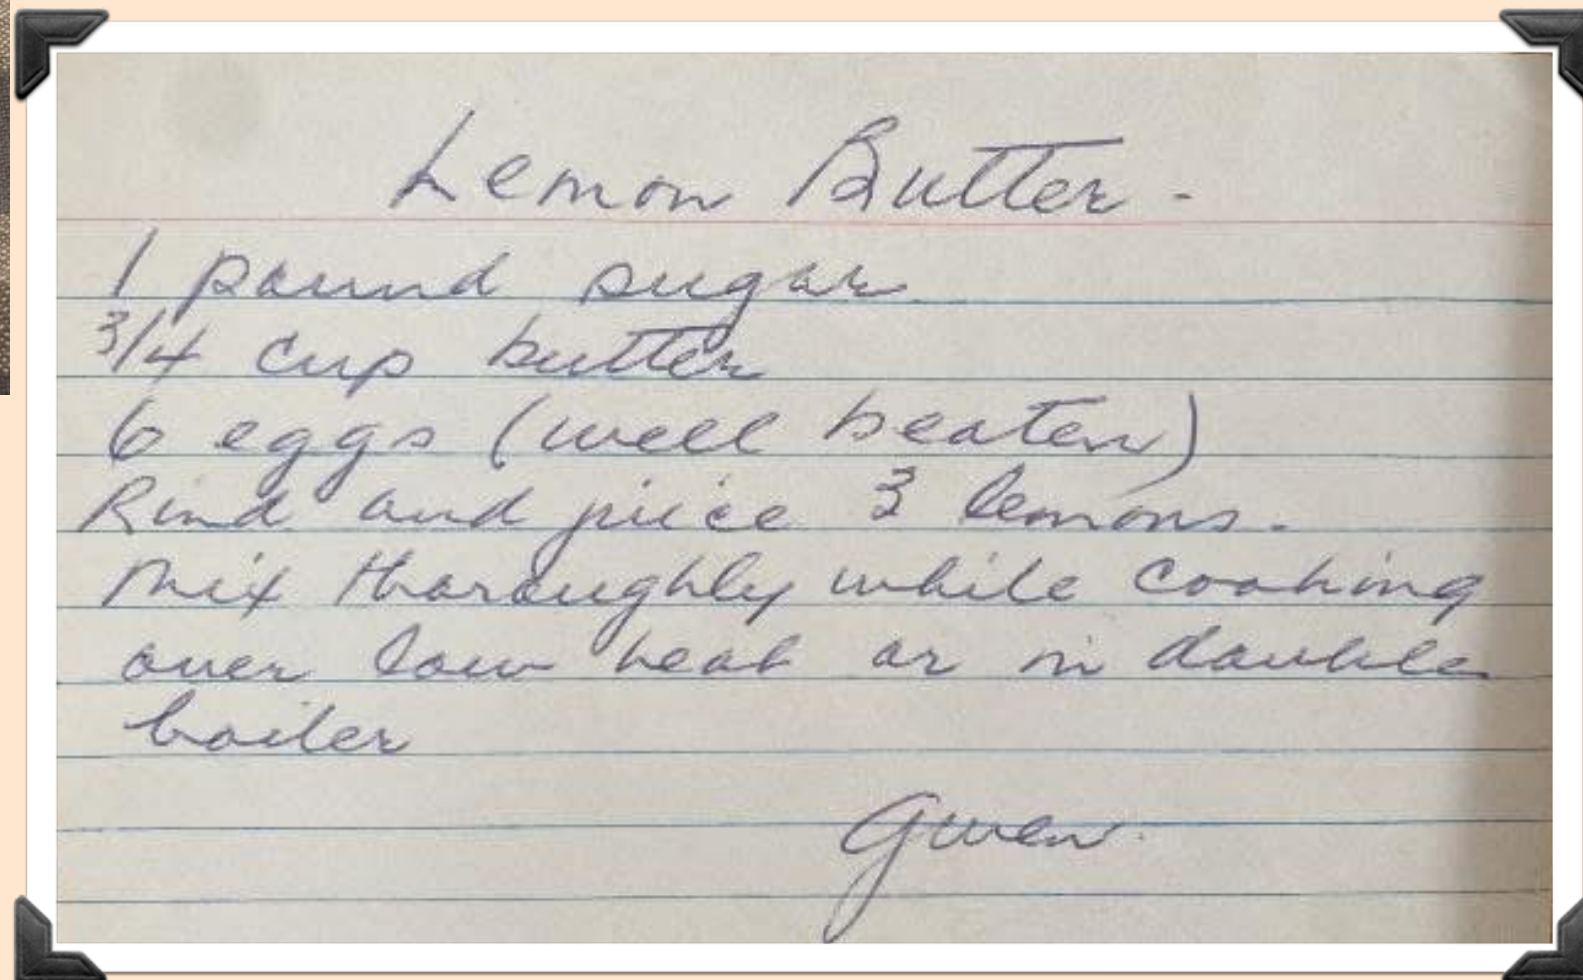 Lemon Butter -
1 pound sugar
3/4 cup butter
6 eggs (well beaten)
Rind and juice 3 lemons.
Mix thoroughly while cooking
over low heat or in double
boiler
Gwen.